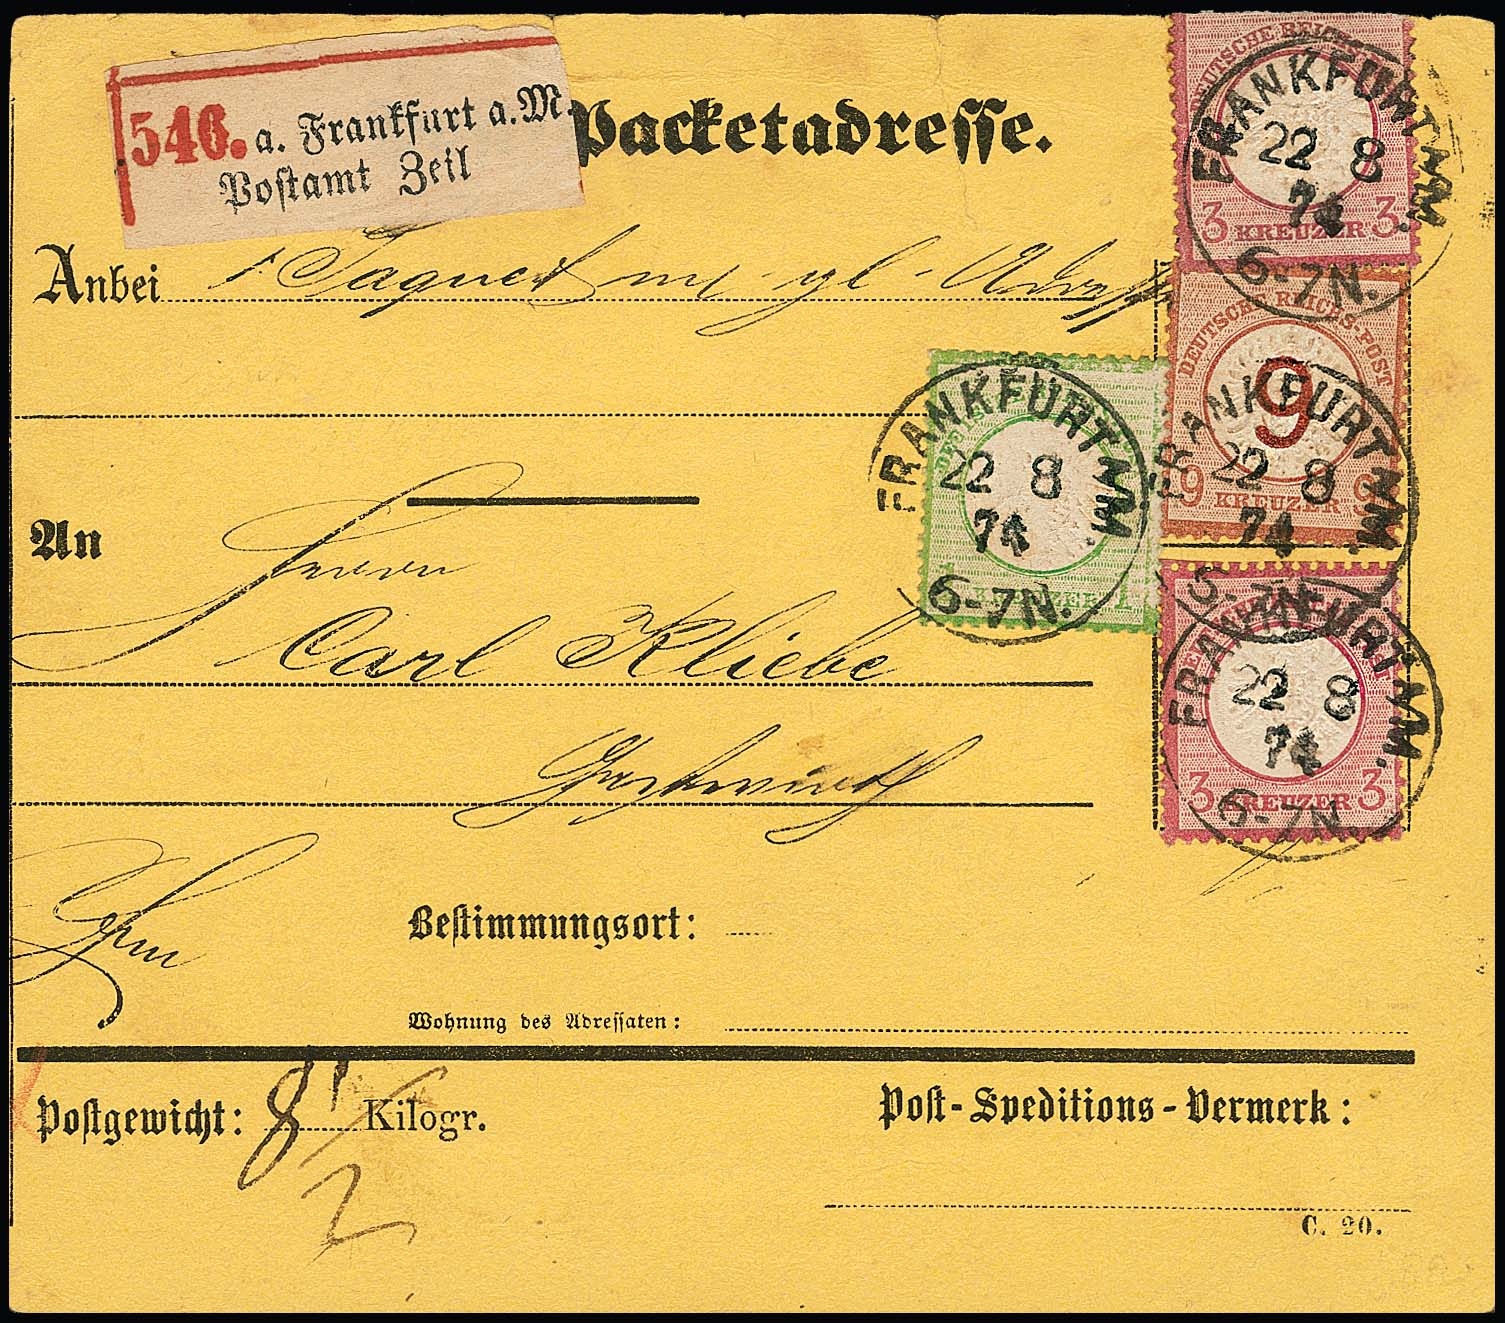 546. a. Frankfurt a. M.
Postamt Zeil
Packetadresse.
Anbei 1 Paquet
An Herrn
Carl Kliebe
Gastwirth
Bestimmungsort:
Wohnung des Adressaten:
Postgewicht: 8 1/2 Kilogr.
Post-Speditions-Vermerk:
C. 20.
DEUTSCHE REICHS
3 KREUZER 3
FRANKFURT A/M.
22 8
74
6-7N.
DEUTSCHE REICHS-POST
9
9 KREUZER 9
FRANKFURT A/M.
22 8
74
6-7N.
1 KREUZER 1
FRANKFURT A/M.
22 8
74
6-7N.
3 KREUZER 3
FRANKFURT A/M.
22 8
74
6-7N.